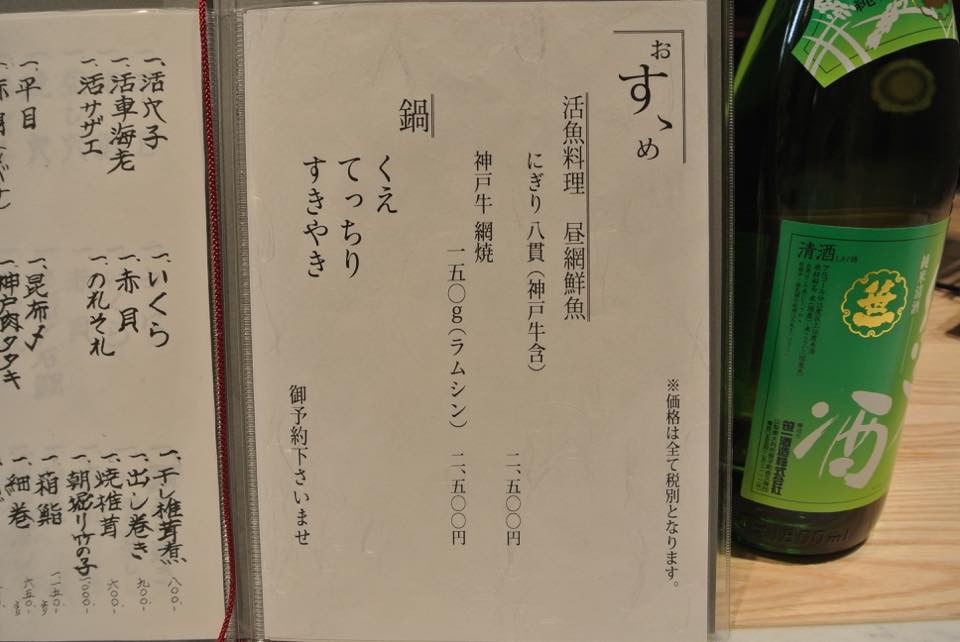 おすゝめ
※価格は全て税別となります。
活魚料理 昼網鮮魚
にぎり 八貫(神戸牛含) 二、五〇〇円
神戸牛 網焼
一五〇g(ラムシン) 二、五〇〇円
鍋
くえ
てっちり
すきやき
御予約下さいませ
一、活穴子
一、活車海老
一、活サザエ
一、平目
一、いくら
一、赤貝
一、のれそれ
一、昆布〆
一、神戸肉タタキ
一、干し椎茸煮 八〇〇-
一、出し巻き 九〇〇-
一、焼椎茸 六〇〇-
一、朝堀り竹の子 一〇〇〇-
一、箱鮨 一一五〇-より
一、細巻 六五〇-より
清酒
純米酒
笹一
酒
笹一酒造株式会社